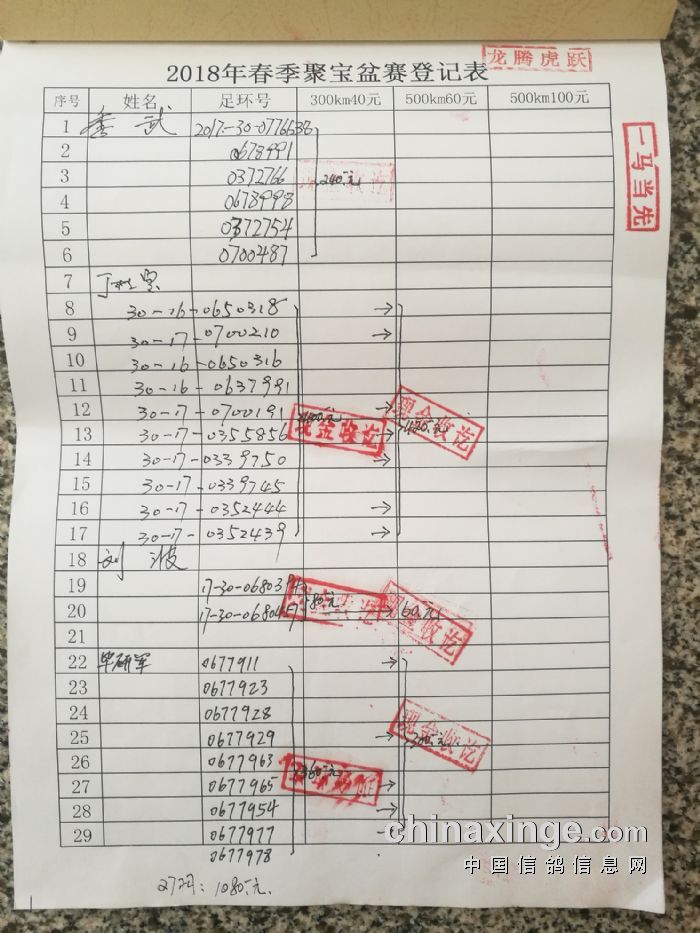 龙腾虎跃
2018年春季聚宝盆赛登记表
一马当先
序号 姓名 足环号 300km40元 500km60元 500km100元
1 武 2017-30-0776636
2 0678991
3 0372766 240元
4 0678998
5 0372754
6 0700487
7
8 30-16-0650318 →
9 30-17-0700210 →
10 30-16-0650316
11 30-16-0637991
12 30-17-0700191 400元 →
现金收讫 现金收讫
13 30-17-0355856 → 420元
14 30-17-0339750 →
15 30-17-0339745
16 30-17-0352444 →
17 30-17-0352439 →
18 刘波
19 17-30-0680394
20 17-30-06804 80元 → 60元
现金收讫
21
22 毕研军 0677911 →
23 0677923
24 0677928
25 0677929 → 300元
现金收讫
26 0677963 360元
27 0677965 →
28 0677954 →
29 0677977
0677978
27羽:1080元.
chinaxinge.com
中国信鸽信息网